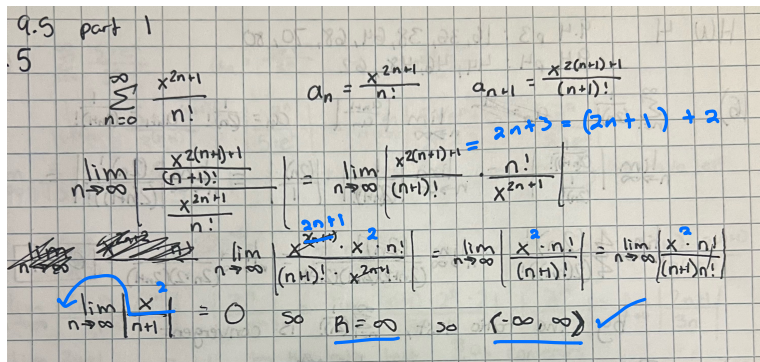 9.5 part 1
5
∞ Σ n=0 x^{2n+1}/n!   a_n = x^{2n+1}/n!   a_{n+1} = x^{2(n+1)+1}/(n+1)!
= 2n+3 = (2n+1) + 2
lim n→∞ | (x^{2(n+1)+1}/(n+1)!) / (x^{2n+1}/n!) | = lim n→∞ | x^{2(n+1)+1}/(n+1)! · n!/x^{2n+1} |
lim n→∞ | x^{2n+1} · x^2 · n! / (n+1)! · x^{2n+1} | = lim n→∞ | x^2 · n! / (n+1)! | = lim n→∞ | x^2 · n! / (n+1)n! |
lim n→∞ | x^2 / n+1 | = 0 so R = ∞ so (-∞, ∞) ✓